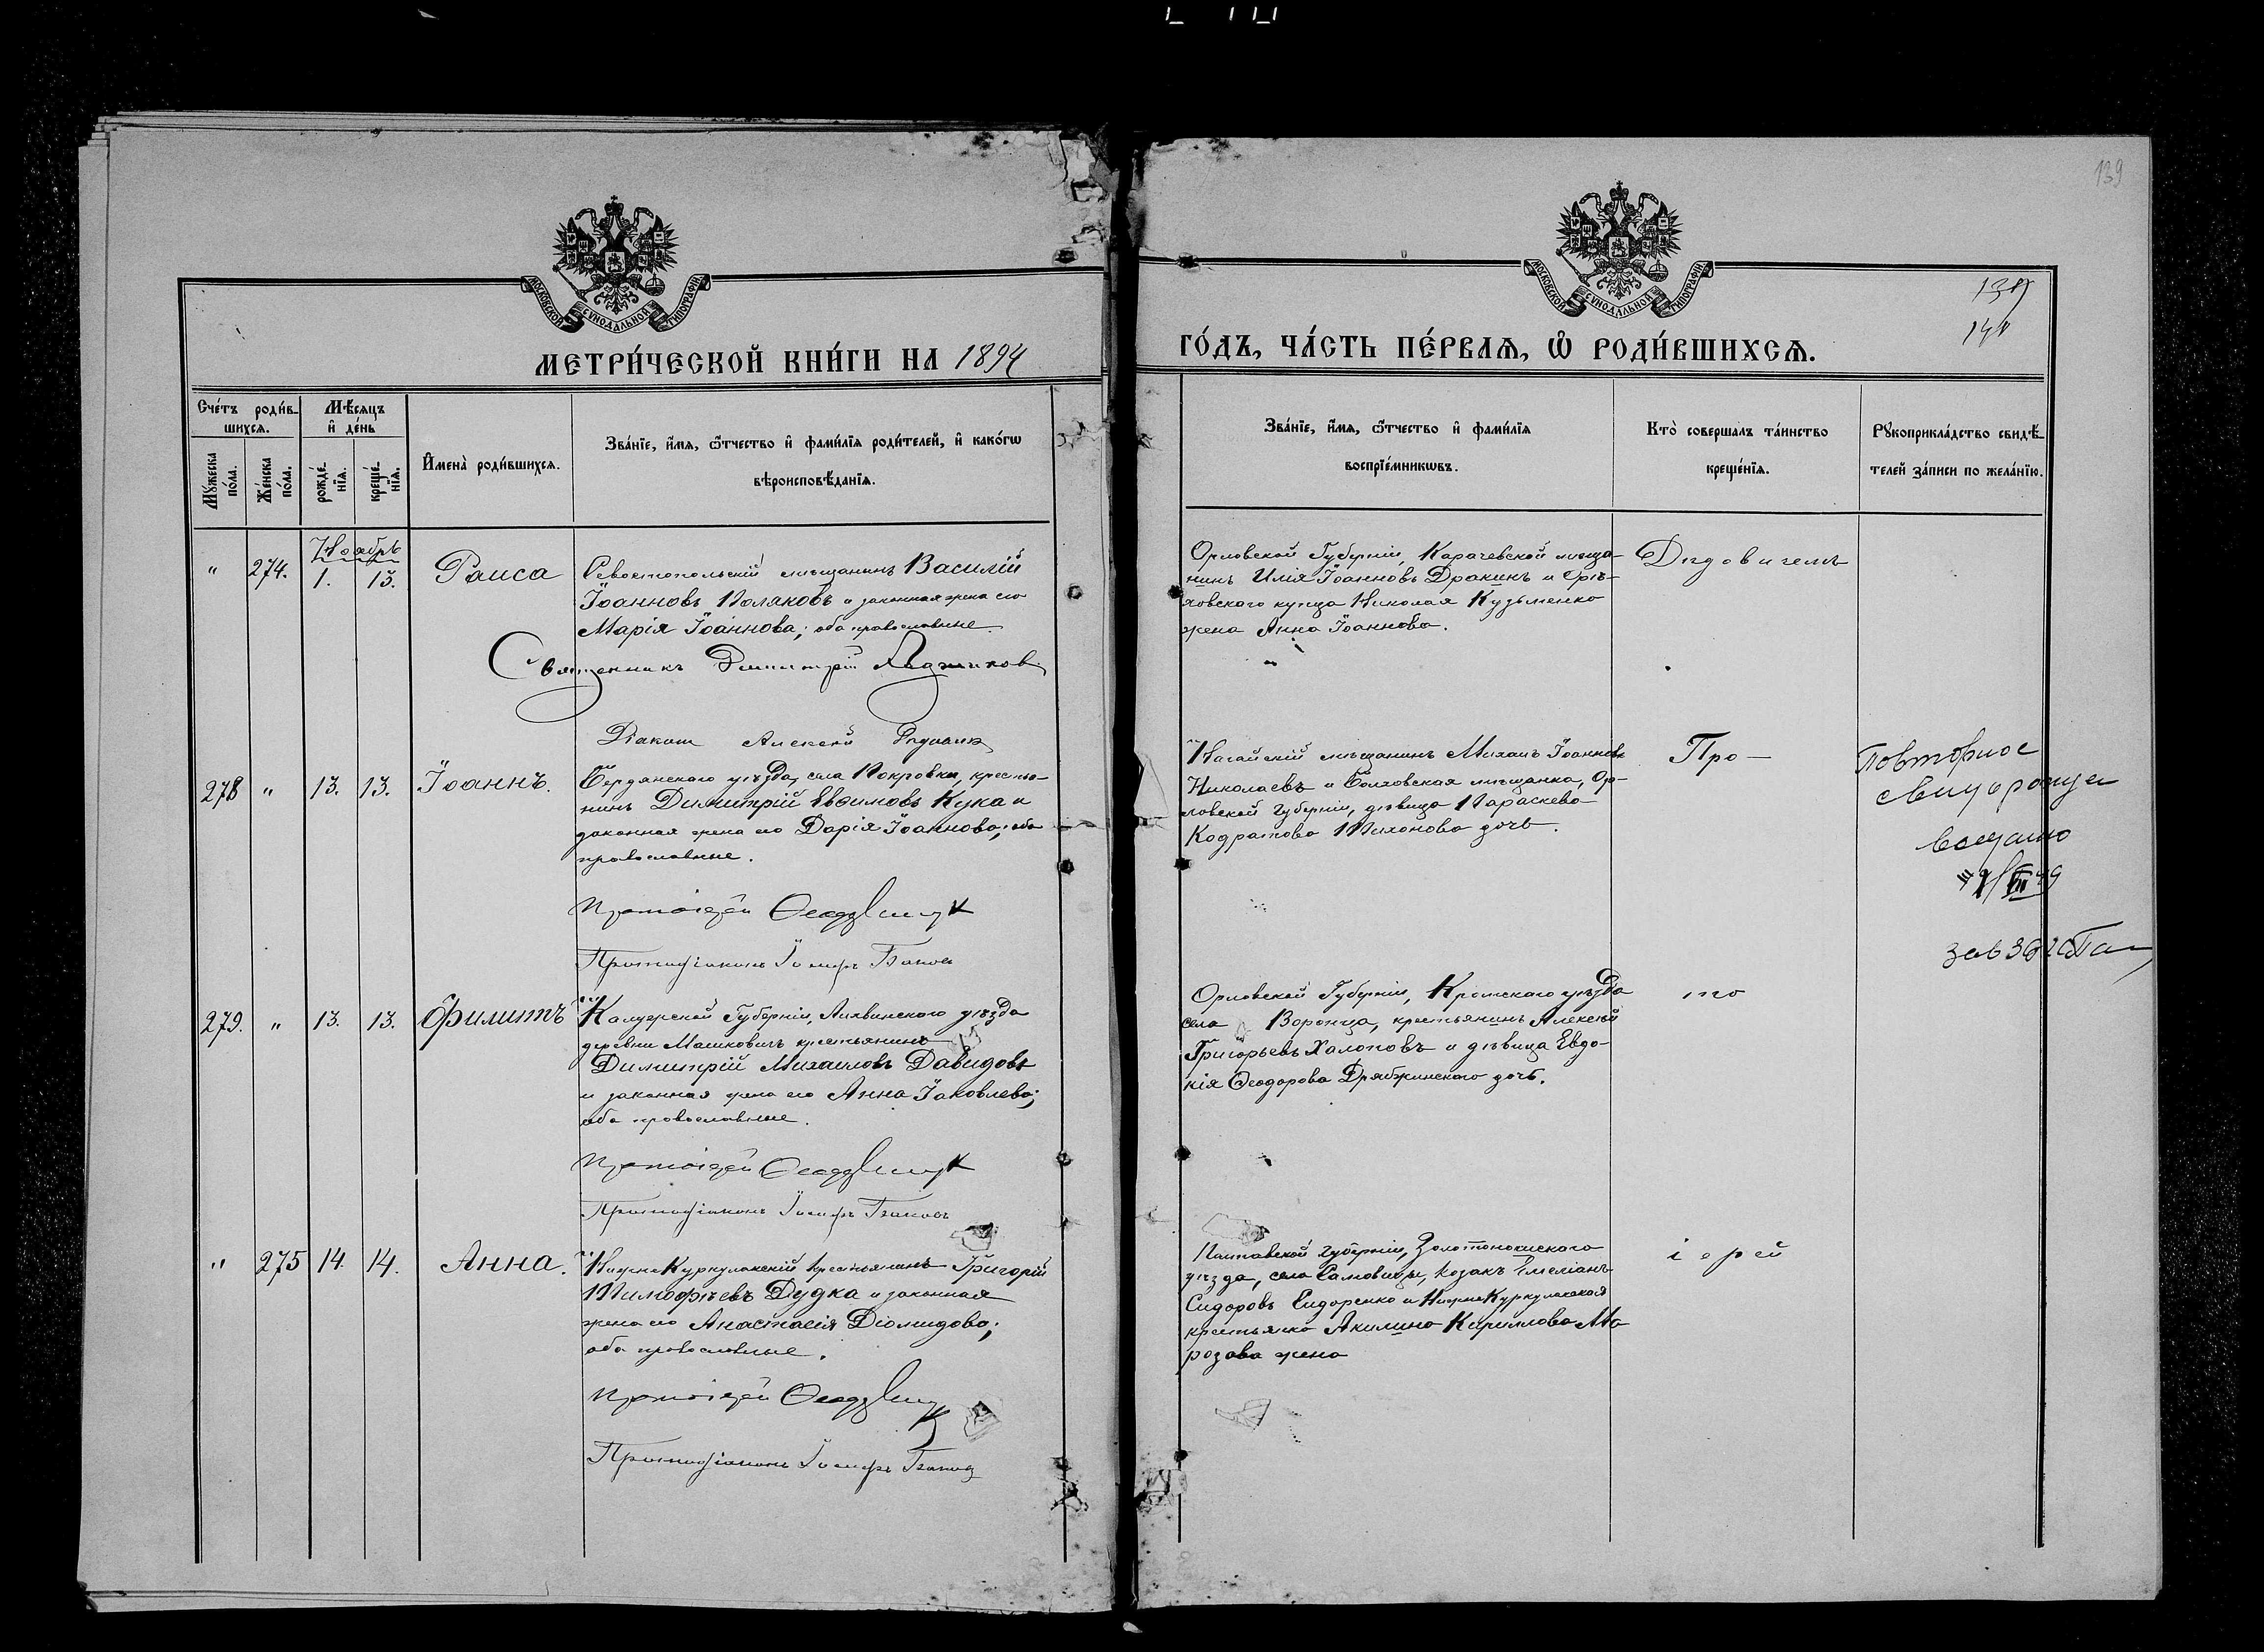 139
МОСКОВСКОЙ СѴНОДАЛЬНОЙ ТИПОГРАФІИ
МОСКОВСКОЙ СѴНОДАЛЬНОЙ ТИПОГРАФІИ
МЕТРИ́ЧЕСКОЙ КНИ́ГИ НА 1894
ГО́ДЪ, ЧА́СТЬ ПЕ́РВАѦ, Ѡ҆ РОДИ́ВШИХСѦ.
Сче́тъ роди́в-
шихсѧ.
Мѣ́сяцъ
и҆ де́нь
Мꙋ́жеска по́ла.
Же́нска по́ла.
рожде́-нїѧ.
креще́-нїѧ.
И҆мена̀ роди́вшихсѧ.
Зва́нїе, и҆́мѧ, ѻ҆́тчество и҆ фами́лїѧ роди́телей, и҆ како́гѡ
вѣроисповѣ́данїѧ.
Зва́нїе, и҆́мѧ, ѻ҆́тчество и҆ фами́лїѧ
воспрїе́мникѡвъ.
Кто̀ соверша́лъ та́инство
креще́нїѧ.
Рꙋкоприкла́дство свидѣ́-
телей за́писи по жела́нїю.
Ноябрь
" 274. 1. 13. Раиса
Севостопольскій мѣщанинъ Василій
Іоанновъ Поляковъ и законная жена его
Марія Іоаннова; оба православные.
Священникъ Димитрій
Діаконъ Алексей
Орловской Губерніи, Карачевской мѣща-
нинъ Илія Іоанновъ Дракинъ и Орѣ-
ховского купца Николая Кузьменко
жена Анна Іоаннова.
278 " 13. 13. Іоаннъ.
Бердянского уѣзда, села Покровки, крестья-
нинъ Димитрій Евѳимовъ Кука и
законная жена его Дарія Іоаннова; оба
православные.
Протоіерей
Протодіаконъ Іосифъ
Ногайскій мѣщанинъ Михаилъ Іоанновъ
Николаевъ и Болховская мѣщанка, Ор-
ловской губерніи, дѣвица Параскева
Кодратова Тихонова дочь.
Про-
Повторное
279. " 13. 13. Филиппъ
Калужской Губерніи, Лихвинского уѣзда
деревни Машковичъ крестьянинъ
Димитрій Михаиловъ Давидовъ
и законная жена его Анна Іаковлева;
оба православные.
Протоіерей
Протодіаконъ Іосифъ
Орловской Губерніи, Кромского уѣзда
села Воронца, крестьянинъ Алексѣй
Григорьевъ Халоповъ и дѣвица Евдо-
кія Ѳеодорова Дрябжинского дочь.
то
" 275 14. 14. Анна.
НижнеКуркулакскій крестьянинъ Григорій
Тимоѳѣевъ Дудка и законная
жена его Анастасія Діомидова;
оба православные.
Протоіерей
Протодіаконъ Іосифъ
Полтавской губерніи, Золотоношского
уѣзда, села, козакъ Емеліанъ
Сидоровъ Сидоренко и НижнеКуркулакская
крестьянка Акилина Кириллова Мо
розова жена
іерей